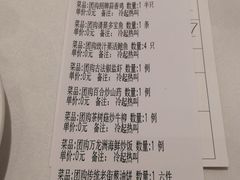 菜品:团购招牌蒜香鸡 数量:1 半只
单价:0元 备注: 冷起热叫
菜品:团购清蒸多宝鱼 数量:1 条
单价:0元 备注: 冷起热叫
菜品:团购豉汁蒸活鲍鱼 数量:4 只
单价:0元 备注: 冷起热叫
菜品:团购古法椒盐虾 数量:1 例
单价:0元 备注: 冷起热叫
菜品:团购百合炒山药 数量:1 例
单价:0元 备注: 冷起热叫
菜品:团购茶树菇炒牛柳 数量:1 例
单价:0元 备注: 冷起热叫
菜品:团购万龙洲海鲜炒饭 数量:1 例
单价:0元 备注: 冷起热叫
菜品:团购传统老街葱油饼 数量:1 六件